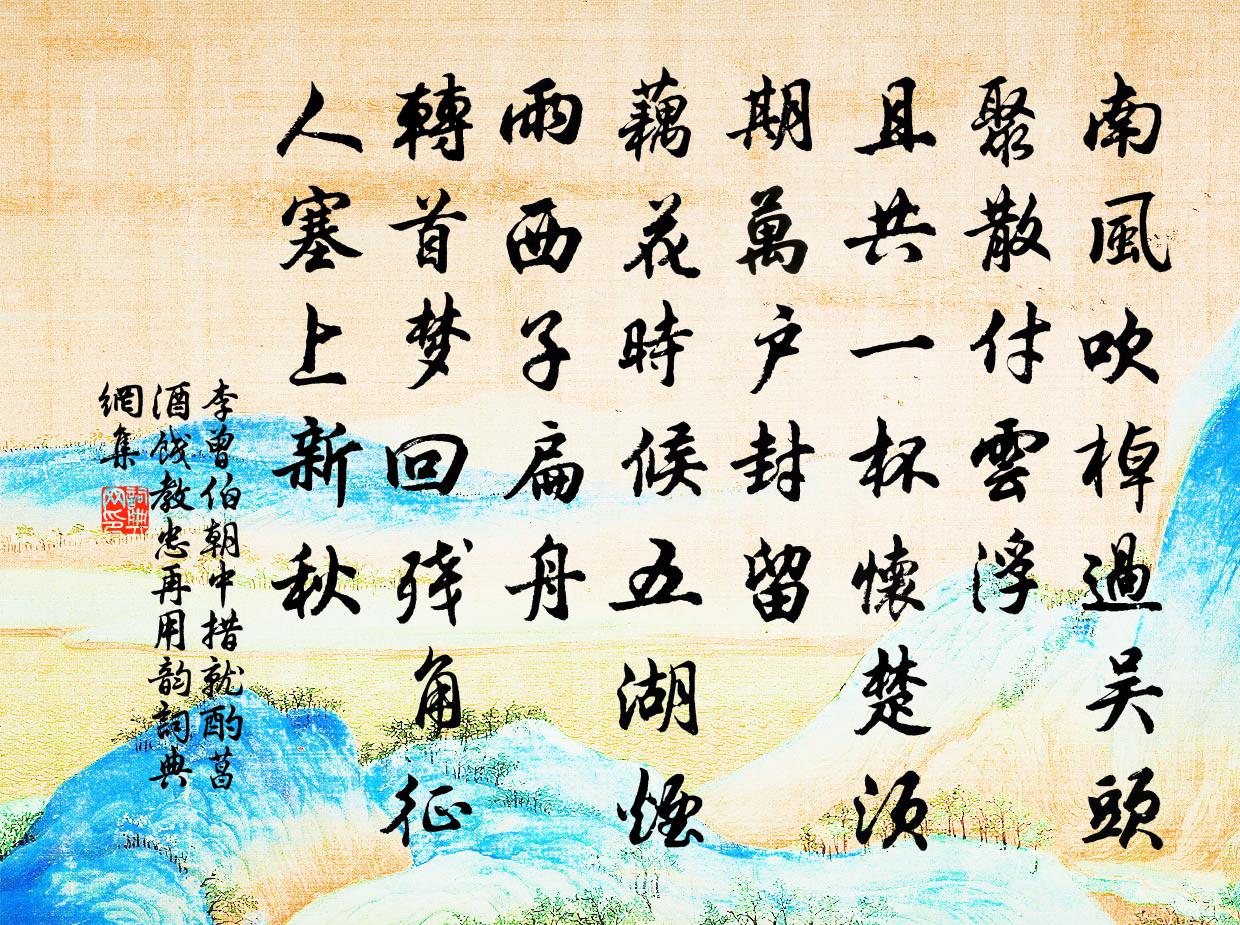 南風吹棹過吴頭
聚散付雲浮
且共一杯懷楚須
期萬户封留
藕花時候五湖煙
雨西子扁舟
轉首梦回残角征
人塞上新秋
李曾伯朝中措就酌菖
酒餞教忠再用韵詞典
網集
詞典
网印